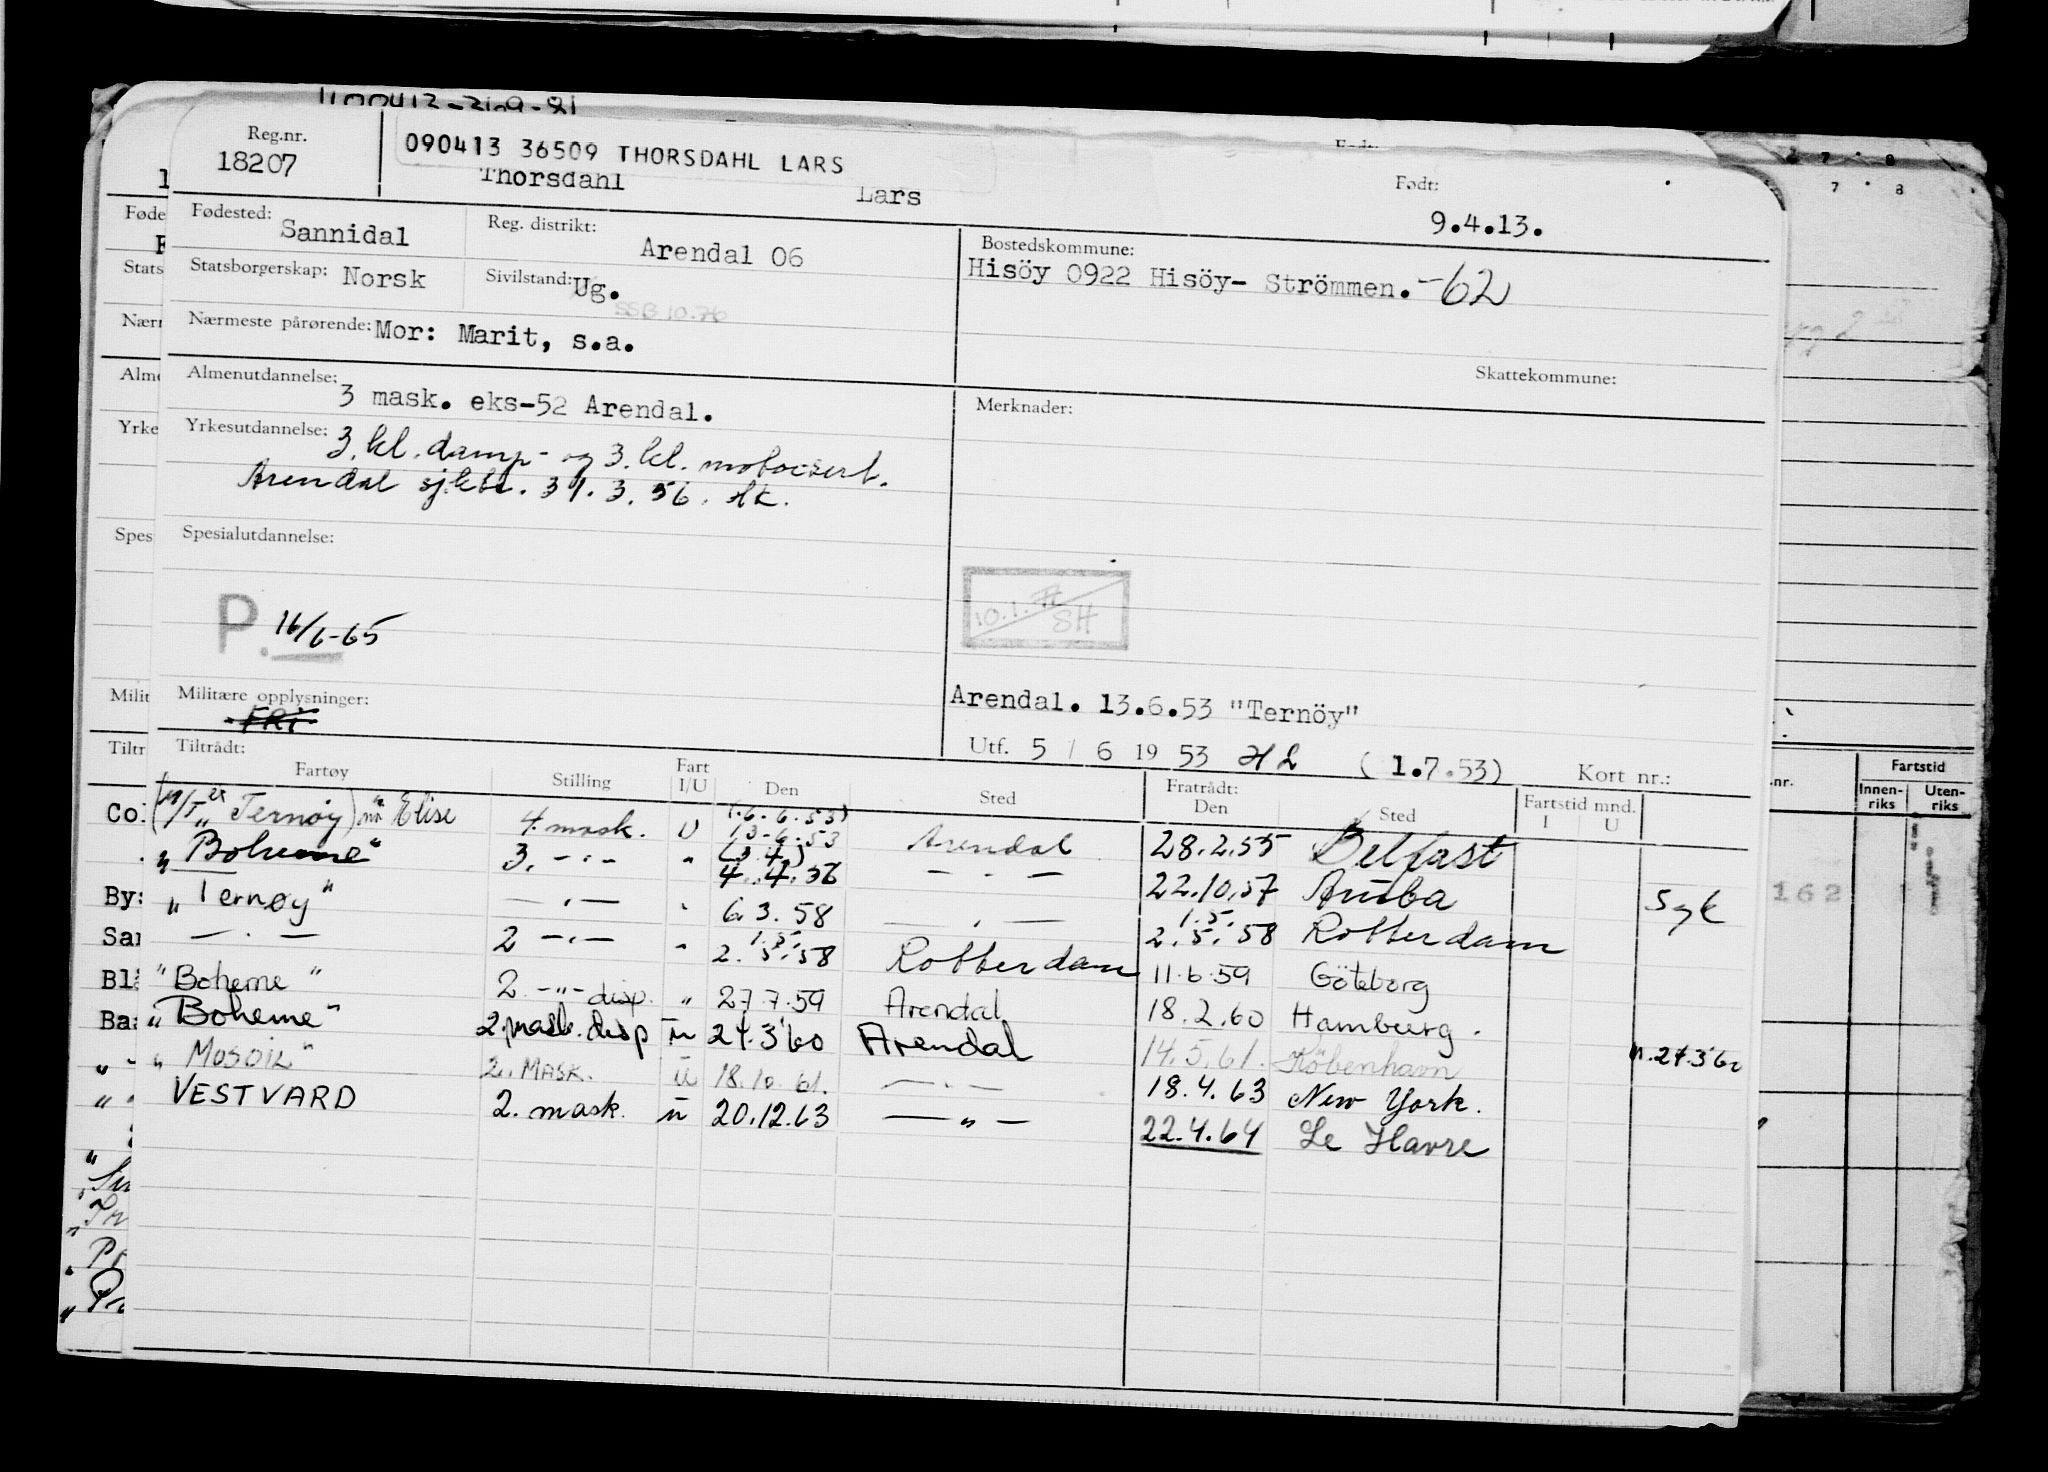 110042-2109-81
Reg.nr.
18207
090413 36509 THORSDAHL LARS
Thorsdahl Lars
Født:
9.4.13.
Fødested: Sannidal
Reg. distrikt: Arendal 06
Bostedskommune:
Hisöy 0922 Hisöy- Strömmen. -62
Statsborgerskap: Norsk
Sivilstand: Ug.
SSB 10.76
Nærmeste pårørende: Mor: Marit, s.a.
Skattekommune:
Almenutdannelse:
3 mask. eks-52 Arendal.
Merknader:
Yrkesutdannelse: 3. kl. damp- og 3. kl. motorsert.
Arendal sjktr. 31.3.56. Hk.
Spesialutdannelse:
P. 16/6-65
10.1. SH
Militære opplysninger:
FRI
Arendal. 13.6.53 "Ternöy"
Utf. 5 / 6 19 53 HL (1.7.53) Kort nr.:
Tiltrådt:
Fartøy Stilling Fart I/U Den Sted Fratrådt: Den Sted Fartstid mnd. I U
(M/T "Ternøy) Elise 4. mask. U (6.6.53) 13-6-53 Arendal 28.2.55 Belfast
"Boheme" 3. -"- " (3.4.) 4.4.56 -"- 22.10.57 Aruba Syk
"Ternøy" -"- " 6.3.58 -"- 1.5. 2.5.58 Rotterdam
-"- 2 -"- " 1.5. 2.5.58 Rotterdam 11.6.59 Göteborg
"Boheme" 2. -"- disp. " 27.7.59 Arendal 18.2.60 Hamburg.
"Boheme" 2. mask. disp u 24.3'60 Arendal 14.5.61. København n.24.3'60
"MOSOIL" 2. MASK. U 18.10.61. -"- 18.4.63 New York.
VESTVARD 2. mask. u 20.12.63 -"- 22.4.64 Le Havre
Fartstid
Innen-riks Uten-riks
162